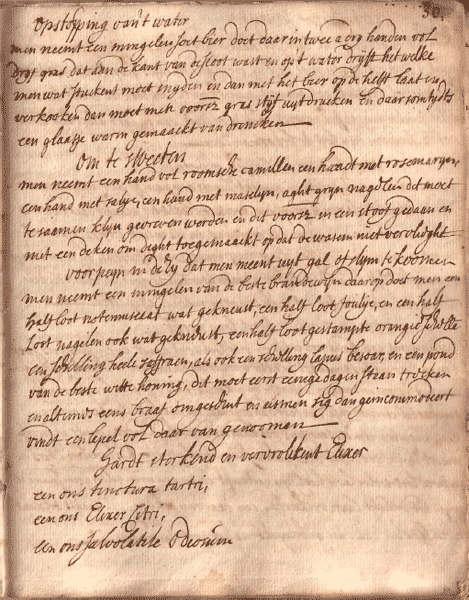 30.
opstopping van't water
men neemt een mingelen soet bier doet daar in twee a dry handen vol
dryf gras dat aan de kant van de sloot wast en op't water dryft het welke
men wat stucken moet snyden en dan met het bier op de helft laaten
verkooken dan moet men voorsz gras styf uyt drucken en daar somtyds
een glaasje warm gemaackt van drencken
Om te sweeten
men neemt een hand vol roomsche camillen een handt met rosemaryn
een hand met salye, een hand met mareleyn, aght greyn nagelen dit moet
te saamen kleyn gevreven werden en dit voorsz in een stoof gedaan en
met een deken om dight toegemaackt op dat de wasem niet vervlieght
voor pyn in de zy dat men meent uyt gal of slym te koomen
men neemt een mingelen van de beste brandewyn daar op doet men een
half loot notemuscaat wat gekneust, een half loot foulje, en een half
loot nagelen ook wat gekneust, een half loot gestampte orangie schille
een schelling heele saffraen, als ook een schelling lapus besoar, en een pond
van de beste witte honing, dit moet eerst eenege dagen staan trecken
en altemets eens braaf omgeschut en als men sig dan geincommodeert
vindt een lepel vol daar van genoomen
Hardt sterkend en vervrolikent Elixer
een ons tinctura tartri,
een ons Elixer Citri,
een ons sal volatile Oleosum